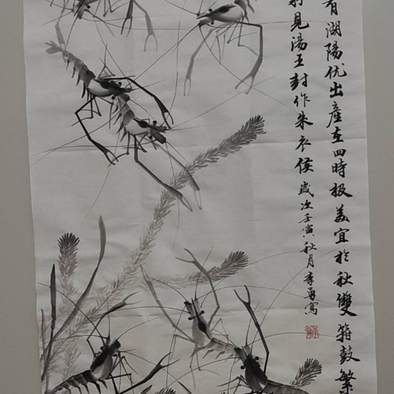 有湖陽优出產在四時极美宜於秋雙箝鼓繁
躬見湯王封作朱衣侯歲次壬寅秋月李勇寫